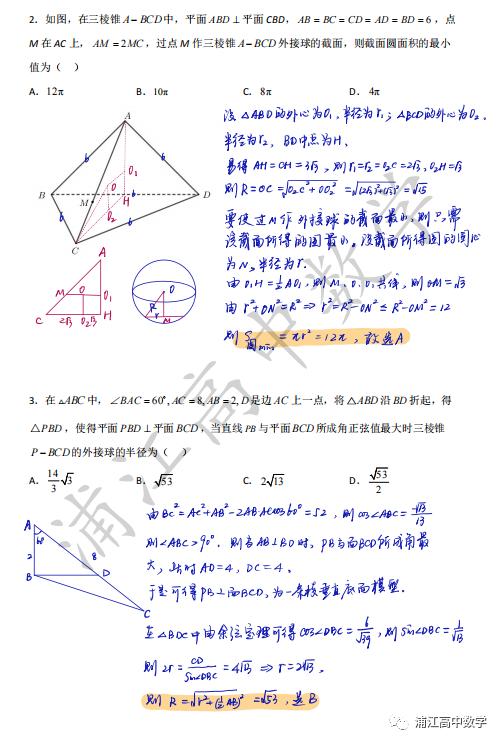 2. 如图，在三棱锥 A－BCD 中，平面 ABD⊥平面 CBD， AB = BC = CD = AD = BD = 6 ，点
M 在 AC 上， AM = 2MC ，过点 M 作三棱锥 A－BCD 外接球的截面，则截面圆面积的最小
值为（ ）
A．12π B．10π C．8π D．4π
设△ABD的外心为O₁,半径为r₁;△BCD的外心为O₂.
半径为r₂, BD中点为H.
易得AH=CH=3√3, 则r₁=r₂=O₂C=2√3,O₂H=√3
则R=OC=√(O₂C²+OO₂²)=√((2√3)²+(√3)²)=√15
要使过M作外接球的截面最小,则只需
该截面所得的圆最小.设截面所得圆的圆心
为N,半径为r.
由O₁H=½AO₁,则M、O、O₁共线,则OM=√3
由r²+ON²=R²⇒r²=R²-ON²≤R²-OM²=12
则S圆min=πr²=12π, 故选A
A
b
b
O₁
O
B
M
H
b
D
O₂
b
b
C
A
M
O
O₁
C
2√3
O₂
√3
H
O
R
r
M
3. 在 △ABC 中， ∠BAC = 60°, AC = 8, AB = 2, D 是边 AC 上一点，将 △ABD 沿 BD 折起，得
△PBD ，使得平面 PBD⊥平面 BCD ，当直线 PB 与平面 BCD 所成角正弦值最大时三棱锥
P－BCD 的外接球的半径为（ ）
A．14/3 √3 B．√53 C．2√13 D．√53/2
由BC²=AC²+AB²-2AB·ACcos60°=52, 则cos∠ABC=-√13/13
则∠ABC>90°. 则当AB⊥BD时, PB与面BCD所成角最
大, 此时AD=4, DC=4.
于是可得PB⊥面BCD,为一条棱垂直底面模型.
在△BDC中由余弦定理可得cos∠DBC=6/√39, 则sin∠DBC=1/√13
则2r=CD/sin∠DBC=4√13⇒r=2√13.
则R=√(r²+(½AB)²)=√53, 选B
A
60°
2
8
B
D
C
浦江高中数学
浦江高中数学